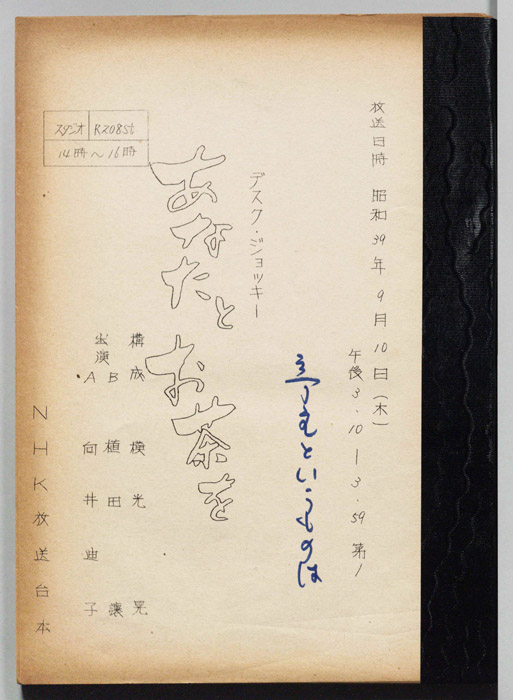 放送日時 昭和39年9月10日(木)
午後3.10ー3.59 第1
というものは
デスク・ジョッキー
あなたとお茶を
スタジオ R208st
14時〜16時
構成 横光晃
出演 B 植田譲
A 向井迪子
NHK放送台本